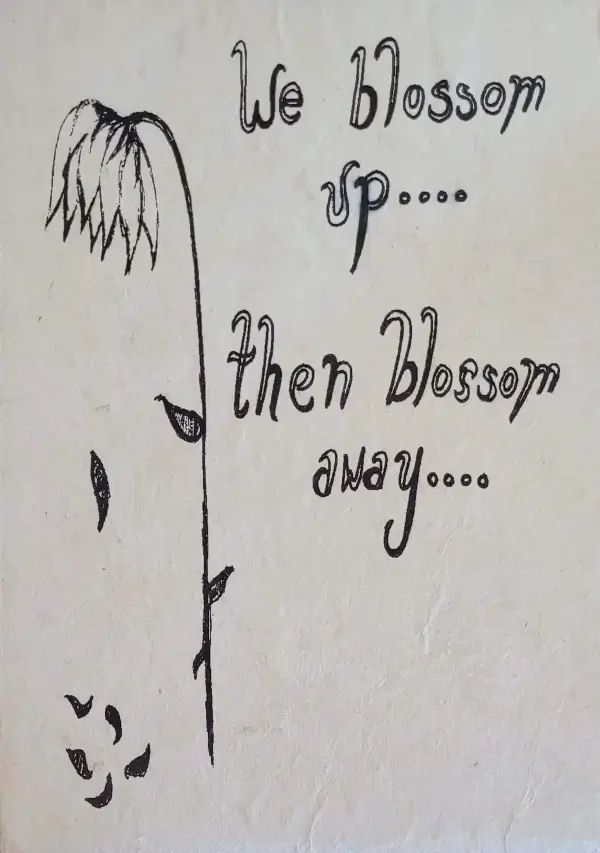 We blossom
up....
then blossom
away....